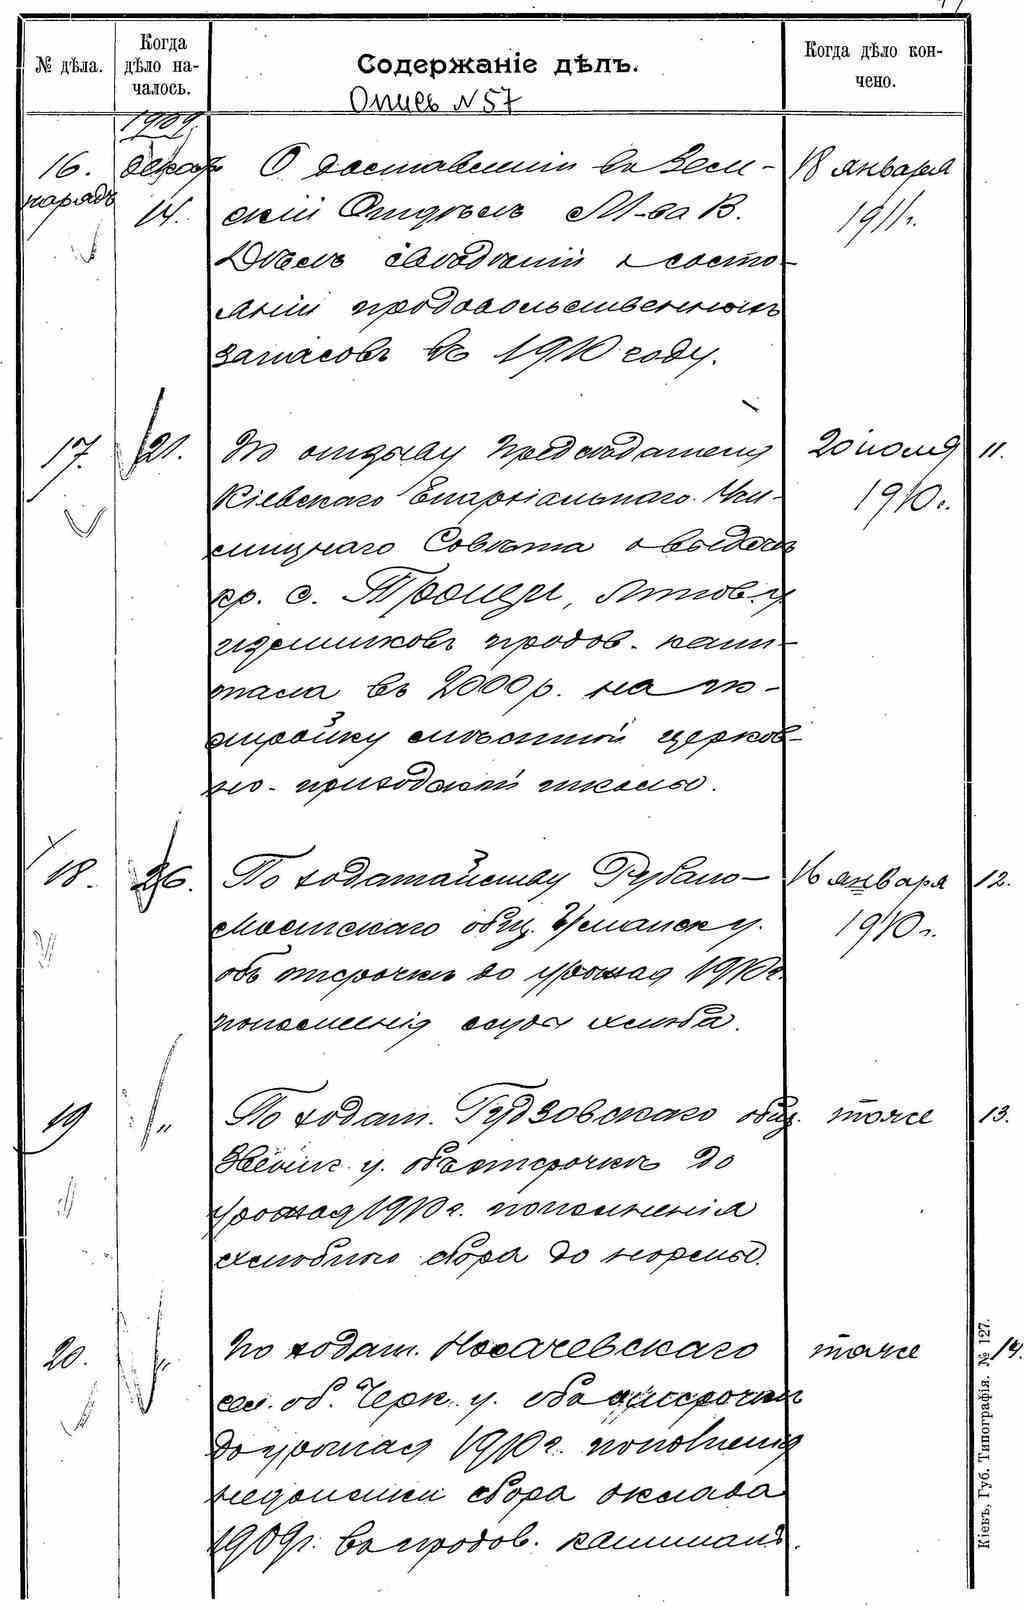 № дѣла.
Когда
дѣло на-
чалось.
Содержаніе дѣлъ.
Когда дѣло кон-
чено.
Опись N 57
1909.
16.
нарядъ
декаб
14.
О доставленіи въ Зем-
скій Отдѣлъ М-ва В.
Дѣлъ свѣдѣній о состо-
яніи продовольственныхъ
запасовъ въ 1910 году.
18 января
1911г.
17.
21.
По отзыву Предсѣдателя
Кіевскаго Епархіальнаго Учи-
лищнаго Совѣта о выдачѣ
кр. с. Троицы, Липов. у.
излишковъ продов. капи-
тала въ 2000 р. на по-
стройку мѣстной церков-
но-приходской школы.
20 іюля
1910г.
11.
18.
26.
По ходатайству Рубано-
Мостскаго общ. Уманск у.
объ отсрочкѣ до урожая 1910г.
пополненія ссуды хлѣба.
16 января
1910г.
12.
19
"
По ходат. Гудзовскаго общ.
Звениг. у. объ отсрочкѣ до
урожая 1910г. пополненія
хлѣбнаго сбора до нормы.
тоже
13.
20.
"
По ходат. Носачевскаго
сел. об. Черк. у. объ отсрочкѣ
до урожая 1910г. пополненія
недоимки сбора оклада
1909г. въ продов. капиталъ.
тоже
14.
Кіевъ, Губ. Типографія. № 127.